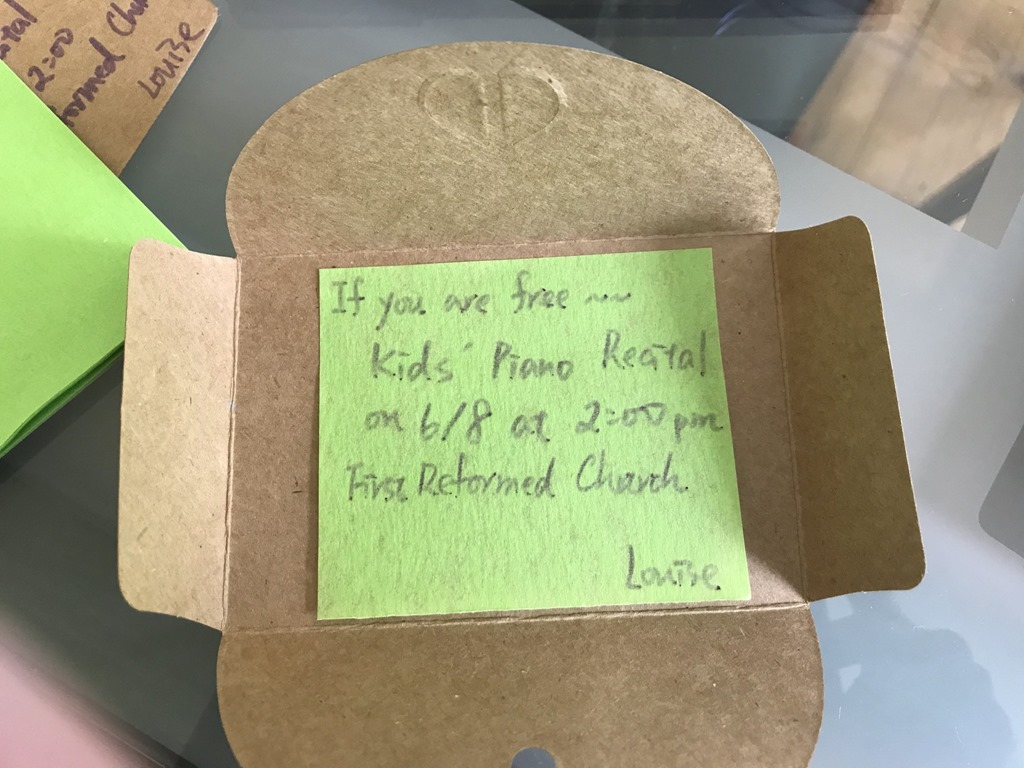 ital
2:00
formed Chu
Louise
If you are free ~~
Kids' Piano Recital
on 6/8 at 2:00 pm
First Reformed Church
Louise